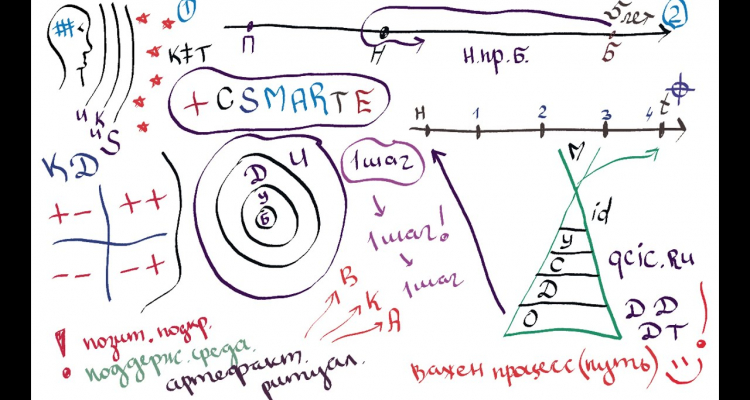 1
5 лет
2
П
Н
Б
Н.пр.Б.
К≠Т
И
К
И
S
+ CSMARTE
Н 1 2 3 4 t
КД
+ -
+ +
- -
- +
И
Д
У
Б
1шаг
1шаг!
1шаг
М
id
У
С
Д
О
qcic.ru
ДД
ДТ
В
К
А
! позит. подкр.
поддерж. среда.
артефакт.
ритуал.
Важен процесс (путь)!